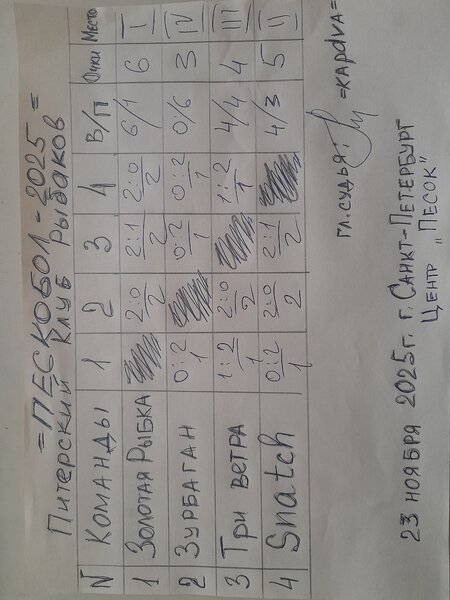 =ПЕСКОБОЛ-2025=
Питерский Клуб Рыбаков
N Команды 1 2 3 4 В/П Очки Место
1 Золотая Рыбка 2:0 2 2:1 2 2:0 2 6/1 6 I
2 Зурбаган 0:2 1 0:2 1 0:2 1 0/6 3 IV
3 Три ветра 1:2 1 2:0 2 1:2 1 4/4 4 III
4 Snatch 0:2 1 2:0 2 2:1 2 4/3 5 II
гл. судья: =КАРДИА=
23 ноября 2025г. г. Санкт-Петербург
Центр "Песок"